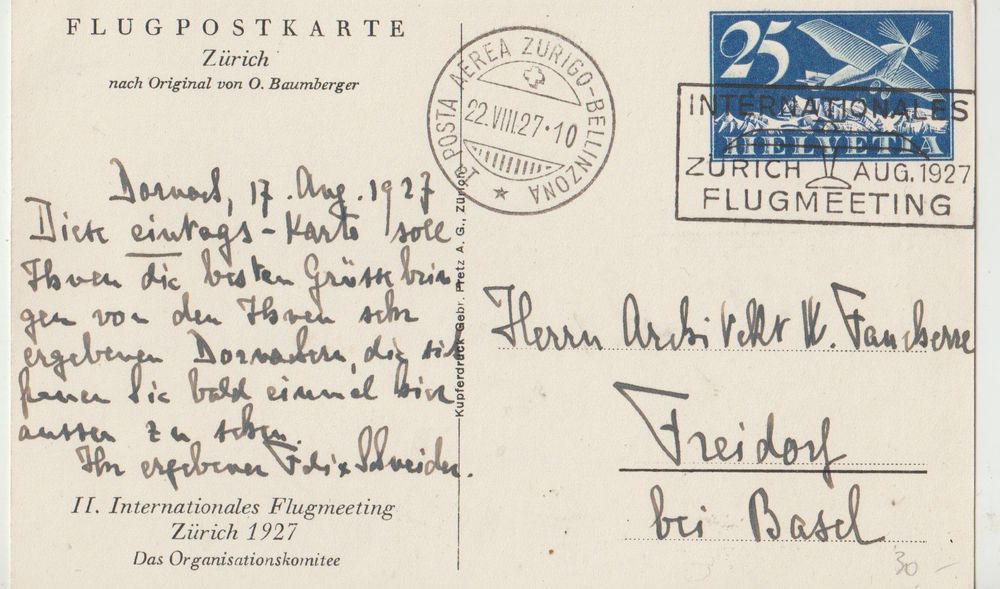 FLUGPOSTKARTE
Zürich
nach Original von O. Baumberger
1. POSTA AEREA ZURIGO-BELLINZONA
22.VIII.27·10
25
HELVETIA
INTERNATIONALES
ZÜRICH AUG. 1927
FLUGMEETING
Dornach, 17. Aug. 1927
Diese eintags-Karte soll
Ihnen die besten Grüsse brin
gen von den Ihnen sehr
ergebenen Dornachern, die sich
freuen Sie bald einmal hier
aussen zu sehen.
Ihr ergebener Felix Schneider.
II. Internationales Flugmeeting
Zürich 1927
Das Organisationskomitee
Kupferdruck Gebr. Fretz A. G., Zürich
Herrn Architekt W.
Freidorf
bei Basel
30 -